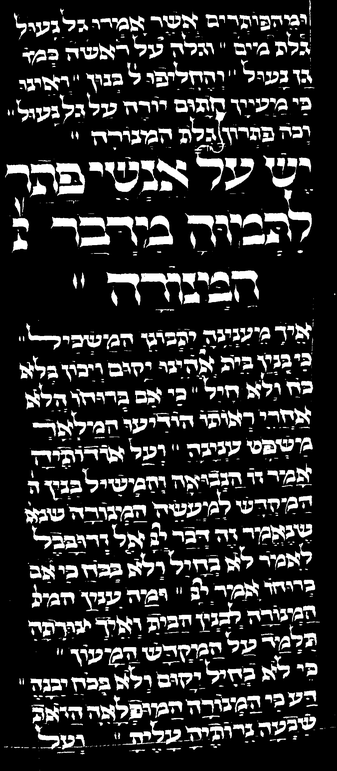 ומהפותרים אשר אמרו גל נעול
גלת מים " וגלה על ראשה כמו
גן נעול " והחליפו ל בנון " ואינו
כי מעיין חתום יורה על גל נעול "
וכה פתרון גלת המנורה "
יש על אנשי פתר
לתמוה מדבר
המנורה "
איך מעניינה יתבונן המשכיל "
כי בנין בית אלהינו יקום ויכון בלא
כח ולא חיל " כי אם ברוחו הלא
אחרי ראותו הודיעו המלאך
משפט ענינה " ועל אודותיה
אמר זו הנבואה וחמשיל בנין ה
המקדש למעשה המנורה שנא
שנאמר זה הדבר יי אל זרובבל
לאמר לא בחיל ולא בכח כי אם
ברוחי אמר יי " ומה ענין המנ
המנורה לבנין הבית ואיך יצורתה
תלמד על המקדש המעון "
כי לא בחיל יקום ולא בכח יבנה "
דע כי המנורה המופלאה הזאת
שבעה נרותיה עליה " ועל